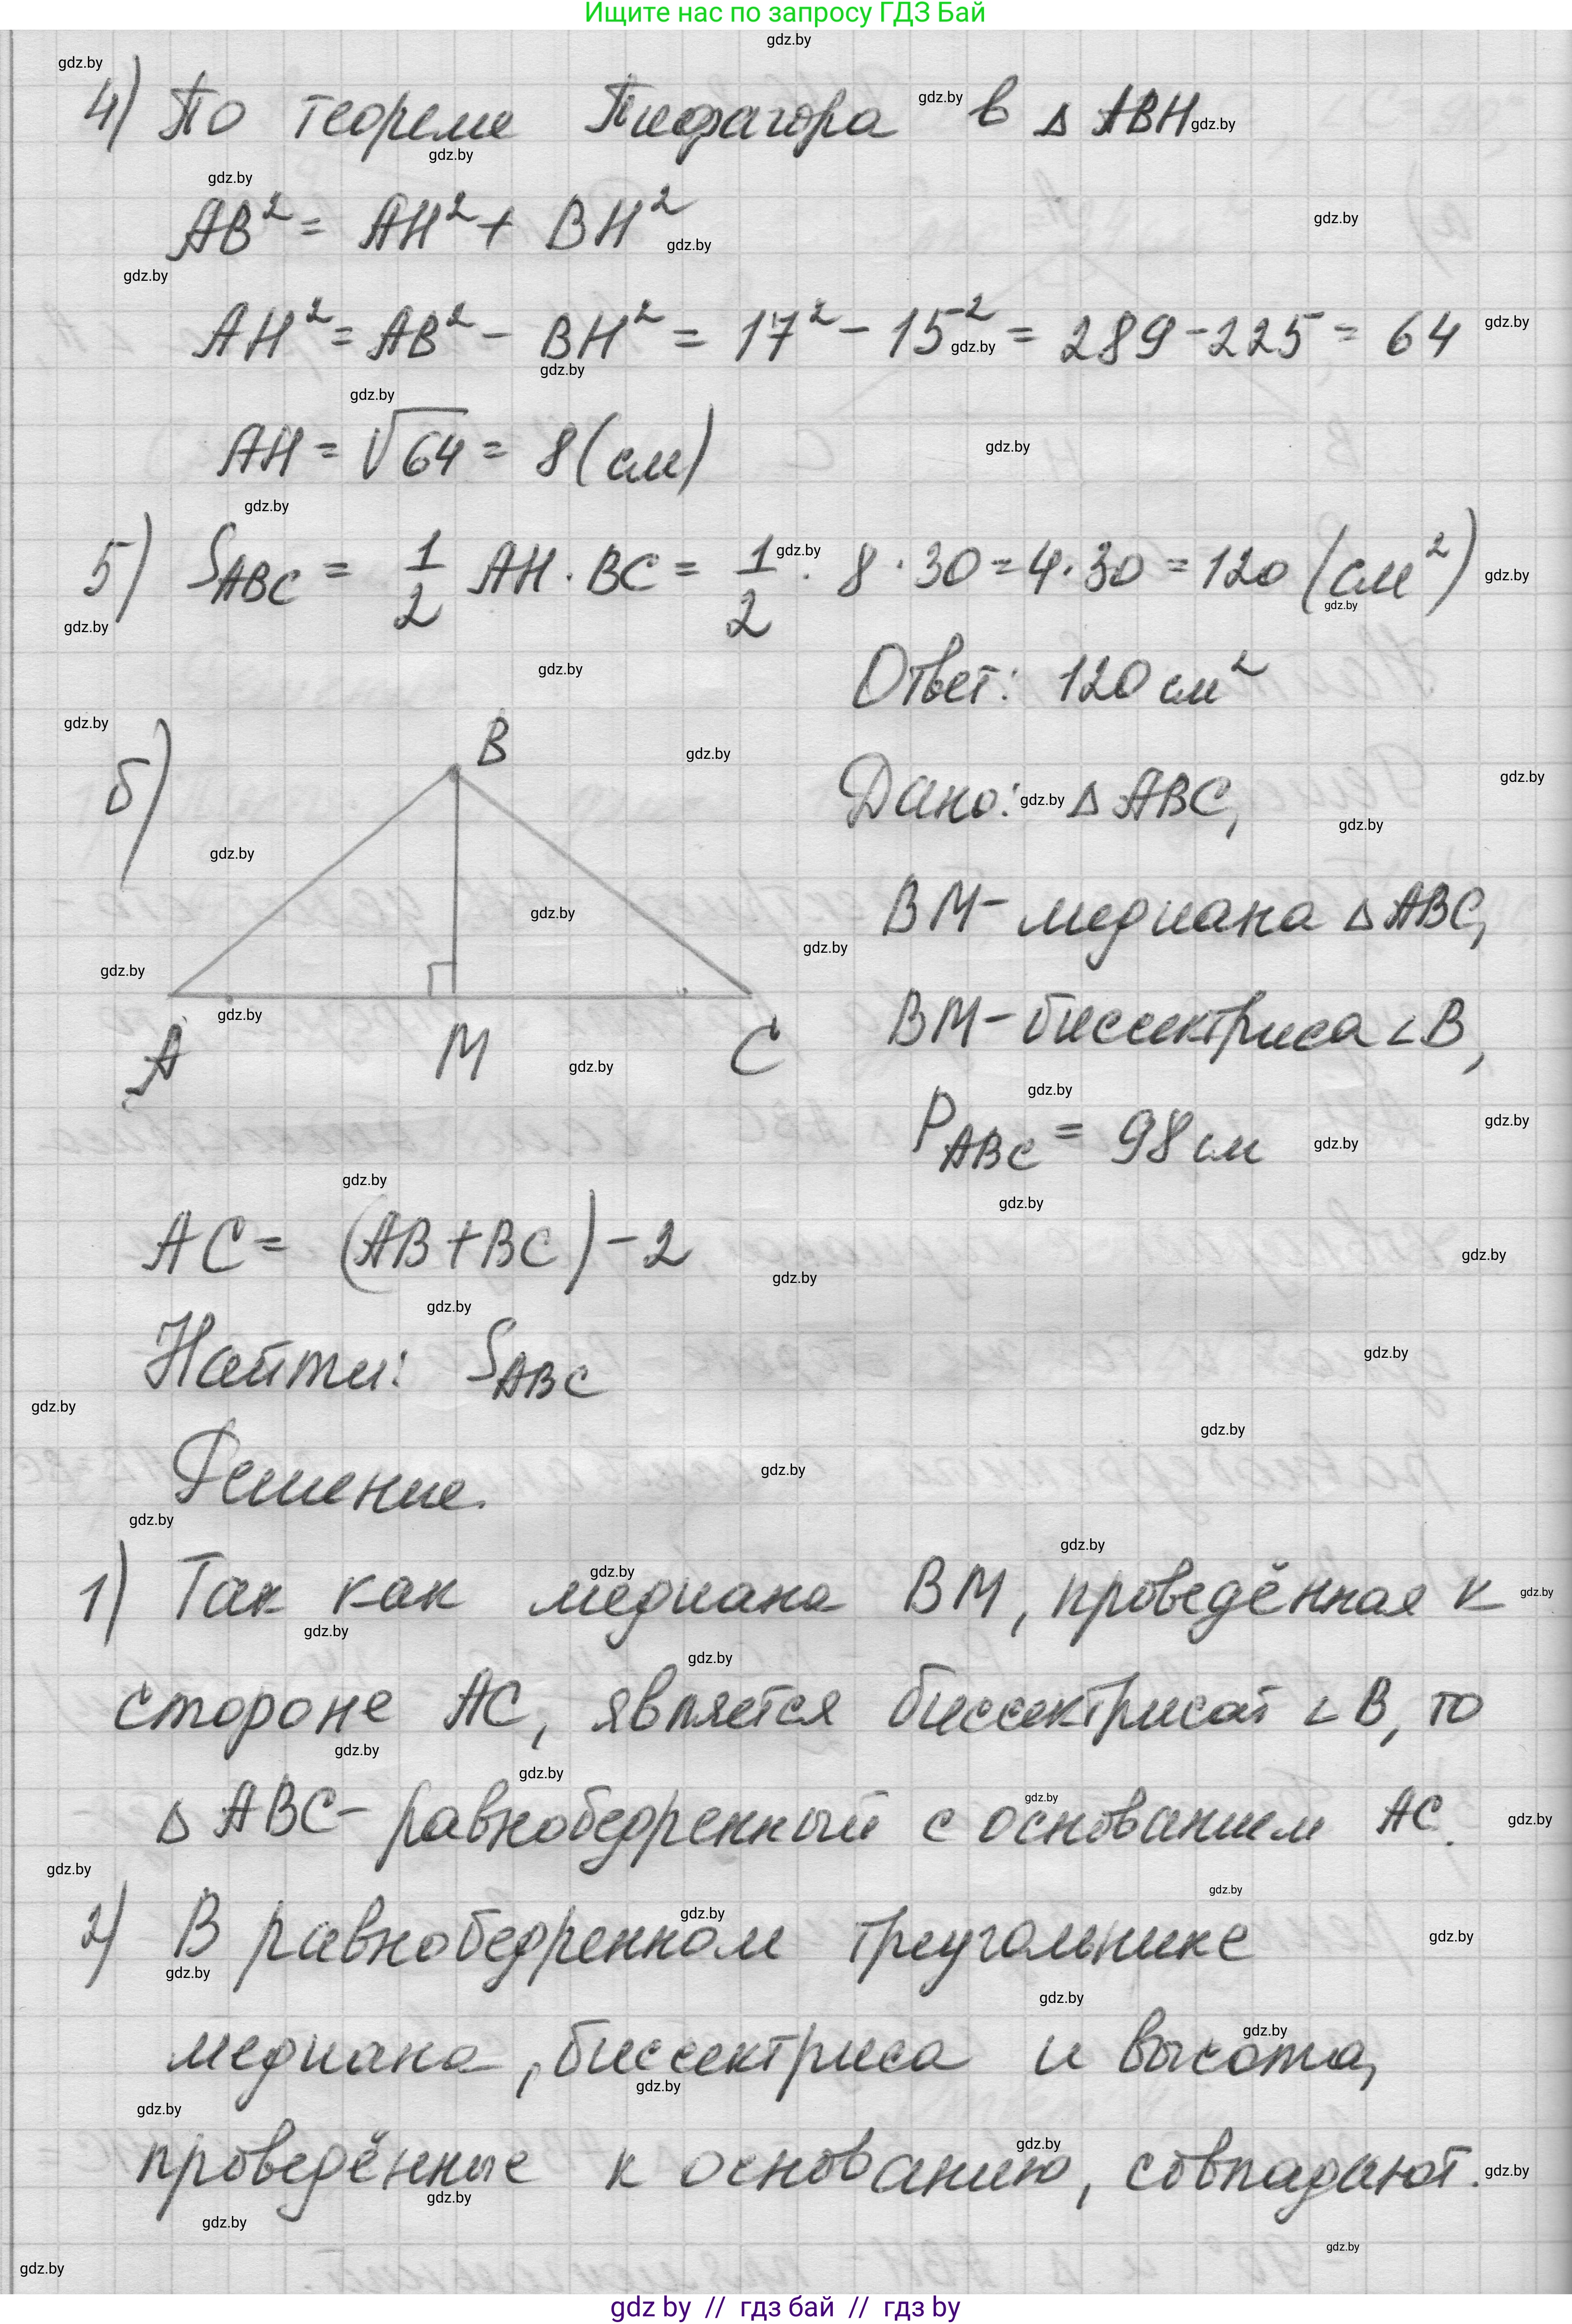 Ищите нас по запросу ГДЗ Бай
4) По теореме Пифагора в △ ABH
AB² = AH² + BH²
AH² = AB² - BH² = 17² - 15² = 289 - 225 = 64
AH = √64 = 8 (см)
5) S_ABC = 1/2 AH · BC = 1/2 · 8 · 30 = 4 · 30 = 120 (см²)
Ответ: 120 см²
б)
B
A
M
C
Дано: △ ABC,
BM - медиана △ ABC,
BM - биссектриса ∠B,
P_ABC = 98 см
AC = (AB + BC) - 2
Найти: S_ABC
Решение.
1) Так как медиана BM, проведённая к
стороне AC, является биссектрисой ∠B, то
△ ABC - равнобедренный с основанием AC.
2) В равнобедренном треугольнике
медиана, биссектриса и высота,
проведённые к основанию, совпадают.
gdz by // гдз бай // гдз by